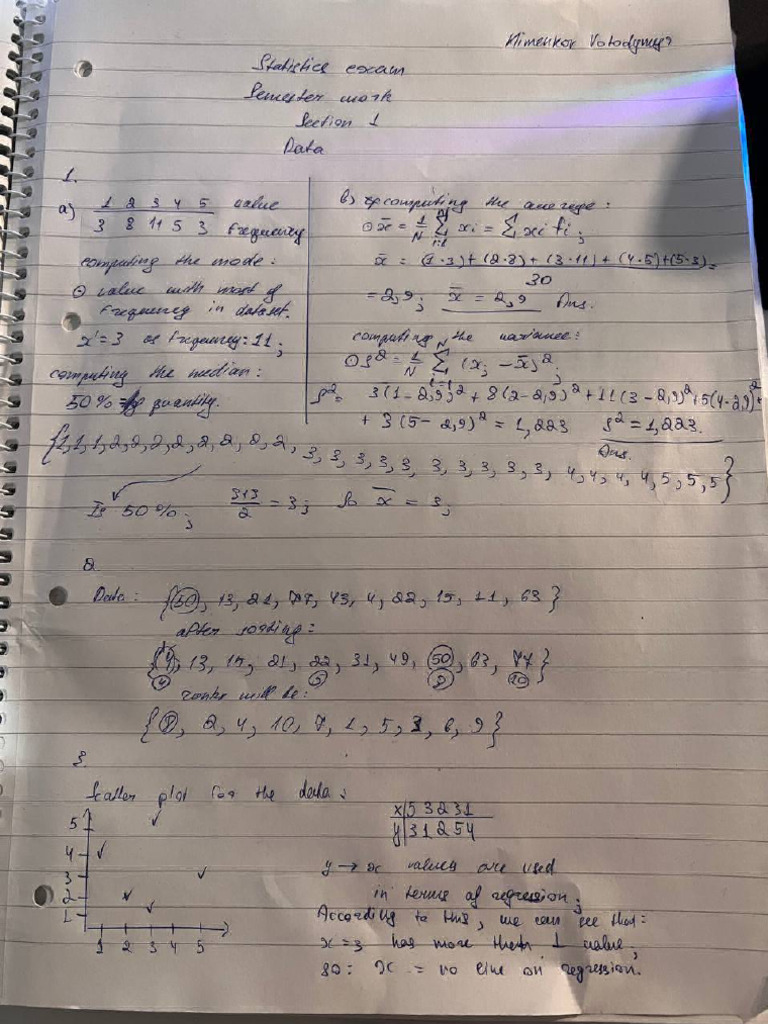 Klimenkov Volodymyr
Statistics exam
Semester mark
Section 1
Data
1.
a) 1 2 3 4 5 value
3 8 11 5 3 frequency
computing the mode:
⊙ value with most of
frequency in dataset.
x = 3 as frequency = 11;
computing the median:
50% quantity.
b) computing the average:
⊙ x̄ = 1/N Σ xi = Σ xi fi;
x̄ = (1·3)+(2·8)+(3·11)+(4·5)+(5·3) / 30 =
= 2,9; x̄ = 2,9 Ans.
computing the variance:
⊙ s² = 1/N Σ (xi - x̄)²;
s² = 3(1-2,9)² + 8(2-2,9)² + 11(3-2,9)² + 5(4-2,9)² +
+ 3(5-2,9)² = 1,223 s² = 1,223.
Ans.
{1,1,1,2,2,2,2,2,2,2,2, 3, 3, 3, 3, 3, 3, 3, 3, 3, 3, 3, 4, 4, 4, 4, 4, 5, 5, 5}
Is 50%; 3+3/2 = 3; So x̄ = 3;
2.
Data: {50, 13, 21, 77, 43, 4, 22, 15, 11, 63}
after sorting:
13, 15, 21, 22, 31, 49, 50, 63, 77}
5 10
ranks will be:
2, 4, 10, 7, 1, 5, 3, 6, 9}
3.
Scatter plot for the data:
5
4
3
2
1
1 2 3 4 5
x 5 3 2 3 1
y 3 1 2 5 4
y → x values are used
in terms of regression;
According to this, we can see that:
x = 3 has more then 1 value;
so: x = no line on regression.